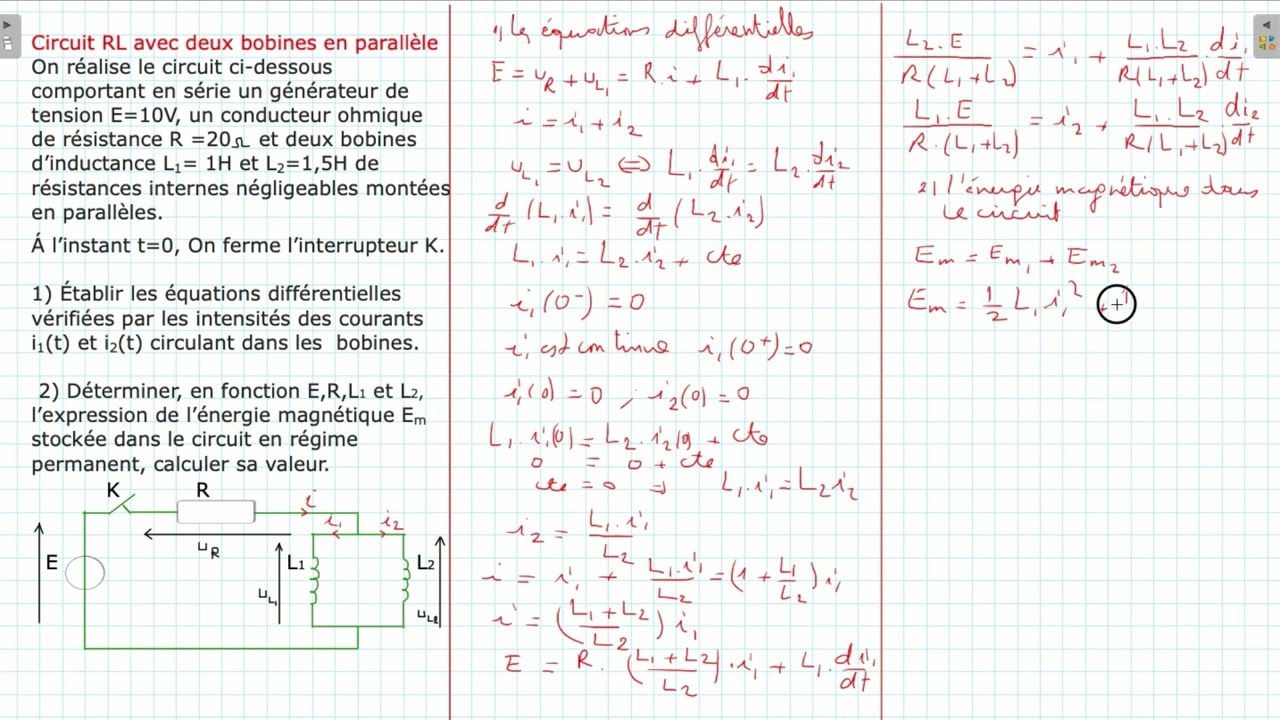 Circuit RL avec deux bobines en parallèle
On réalise le circuit ci-dessous
comportant en série un générateur de
tension E=10V, un conducteur ohmique
de résistance R =20Ω et deux bobines
d'inductance L₁= 1H et L₂=1,5H de
résistances internes négligeables montées
en parallèles.
Á l'instant t=0, On ferme l'interrupteur K.
1) Établir les équations différentielles
vérifiées par les intensités des courants
i₁(t) et i₂(t) circulant dans les bobines.
2) Déterminer, en fonction E,R,L₁ et L₂,
l'expression de l'énergie magnétique Eₘ
stockée dans le circuit en régime
permanent, calculer sa valeur.
K R i
i₁ i₂
u_R
E L₁ L₂
u_L₁ u_L₂
1) les équations différentielles
E = u_R + u_L₁ = R.i + L₁.di₁/dt
i = i₁ + i₂
u_L₁ = u_L₂ ⇔ L₁.di₁/dt = L₂.di₂/dt
d/dt (L₁.i₁) = d/dt (L₂.i₂)
L₁.i₁ = L₂.i₂ + cte
i₁(0⁻) = 0
i₁ est continue i₁(0⁺) = 0
i₁(0) = 0 ; i₂(0) = 0
L₁.i₁(0) = L₂.i₂(0) + cte
0 = 0 + cte
cte = 0 ⇒ L₁.i₁ = L₂i₂
i₂ = L₁.i₁/L₂
i = i₁ + L₁.i₁/L₂ = (1 + L₁/L₂) i₁
i = (L₁+L₂/L₂) i₁
E = R.(L₁+L₂/L₂).i₁ + L₁.di₁/dt
L₂.E/R(L₁+L₂) = i₁ + L₁.L₂/R(L₁+L₂).di₁/dt
L₁.E/R.(L₁+L₂) = i₂ + L₁.L₂/R(L₁+L₂).di₂/dt
2) l'énergie magnétique dans
le circuit
Eₘ = Eₘ₁ + Eₘ₂
Eₘ = 1/2 L₁i₁² +